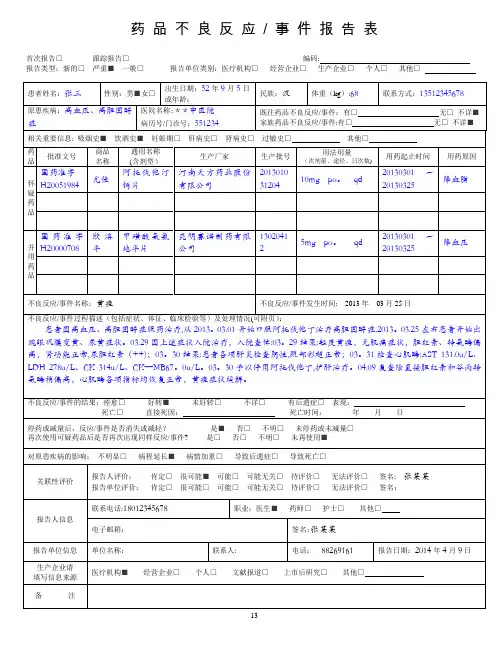 药 品 不 良 反 应 / 事 件 报 告 表
首次报告□ 跟踪报告□ 编码:
报告类型：新的□ 严重■ 一般□ 报告单位类别：医疗机构□ 经营企业□ 生产企业□ 个人□ 其他□
患者姓名：张三 性别：男■女□ 出生日期：52 年 9 月 5 日 民族：汉 体重(kg)：68 联系方式：13512345678
或年龄：
原患疾病：高血压、高胆固醇症 医院名称：**中医院 既往药品不良反应/事件：有□ 无□ 不详■
病历号/门诊号：551234 家族药品不良反应/事件：有□ 无□ 不详■
相关重要信息：吸烟史■ 饮酒史■ 妊娠期□ 肝病史□ 肾病史□ 过敏史□ 其他□
药品 批准文号 商品名称 通用名称(含剂型) 生产厂家 生产批号 用法用量(次剂量、途径、日次数) 用药起止时间 用药原因
怀疑药品 国药准字H20051984 尤佳 阿托伐他汀钙片 河南天方药业股份有限公司 201301031204 10mg po。 qd 20130301 －20130325 降血脂
并用药品 国药准字H20000708 欣洛平 甲磺酸氨氯地平片 昆明赛诺制药有限公司 13020412 5mg po。 qd 20130301 －20130325 降血压
不良反应/事件名称：黄疸 不良反应/事件发生时间： 2013 年 03 月 25 日
不良反应/事件过程描述（包括症状、体征、临床检验等）及处理情况(可附页)：
患者因高血压、高胆固醇症服药治疗,从2013。03.01开始口服阿托伐他丁治疗高胆固醇症.2013。03.25左右患者开始出
现眼巩膜变黄、尿黄症状。03.29因上述症状入院治疗，入院查体:03。29结果:粒皮黄疸，无肌痛症状，胆红素、转氨酶偏
高，肾功能正常,尿胆红素（++）；03。30结果:患者各项肝炎检查阴性,腹部彩超正常；03。31检查心肌酶:AST 131.0u/L、
LDH 278u/L、CK 314u/L、CK—MB67。0u/L。03。30予以停用阿托伐他丁,护肝治疗。04.09复查除直接胆红素和谷丙转
氨酶稍偏高，心肌酶各项指标均恢复正常，黄疸症状缓解。
不良反应/事件的结果：痊愈□ 好转■ 未好转□ 不详□ 有后遗症□ 表现：
死亡□ 直接死因： 死亡时间： 年 月 日
停药或减量后，反应/事件是否消失或减轻？ 是■ 否□ 不明□ 未停药或未减量□
再次使用可疑药品后是否再次出现同样反应/事件? 是□ 否□ 不明□ 未再使用■
对原患疾病的影响： 不明显□ 病程延长■ 病情加重□ 导致后遗症□ 导致死亡□
关联性评价 报告人评价： 肯定□ 很可能■ 可能□ 可能无关□ 待评价□ 无法评价□ 签名：张某某
报告单位评价： 肯定□ 很可能□ 可能□ 可能无关□ 待评价□ 无法评价□ 签名：
报告人信息 联系电话:18012345678 职业：医生■ 药师□ 护士□ 其他□
电子邮箱： 签名:张某某
报告单位信息 单位名称： 联系人： 电话： 88269161 报告日期：2014 年 4 月 9 日
生产企业请填写信息来源 医疗机构■ 经营企业□ 个人□ 文献报道□ 上市后研究□ 其他□
备 注
13